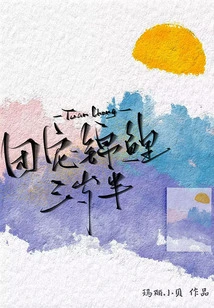 Tuan Chong
团宠锦鲤
三岁半
玛瑙小贝 作品